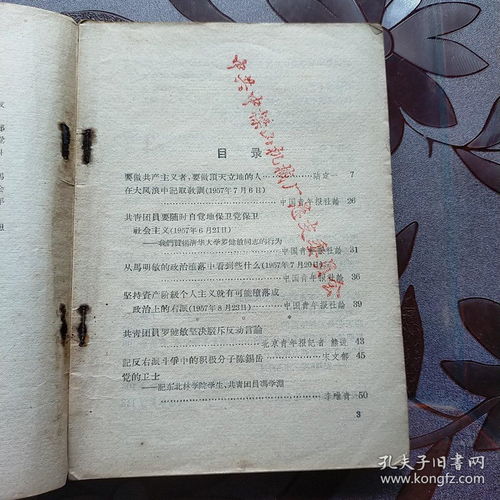 目录
要做共产主义者,要做頂天立地的人……陆定一 7
在大风浪中記取教訓(1957年7月6日)
……中国青年报社論 26
共青团員要随时自觉地保卫党保卫
社会主义(1957年6月21日)
——我們贊揚清华大学罗健敏同志的行为
……中国青年报社論 31
从馬明敏的政治堕落中看到些什么(1957年7月20日)
……中国青年报社論 36
坚持資产阶級个人主义就有可能堕落成
政治上的右派(1957年8月23日)……中国青年报社論 39
共青团員罗健敏坚决駁斥反动言論
……北京青年报記者 43
記反右派斗爭中的积极分子陈錫岳……宋文郁 45
党的卫士
——記东北林学院学生、共青团員馮学淵
……李維青 50
3
中共
孔夫子旧书网
www.kongfz.com